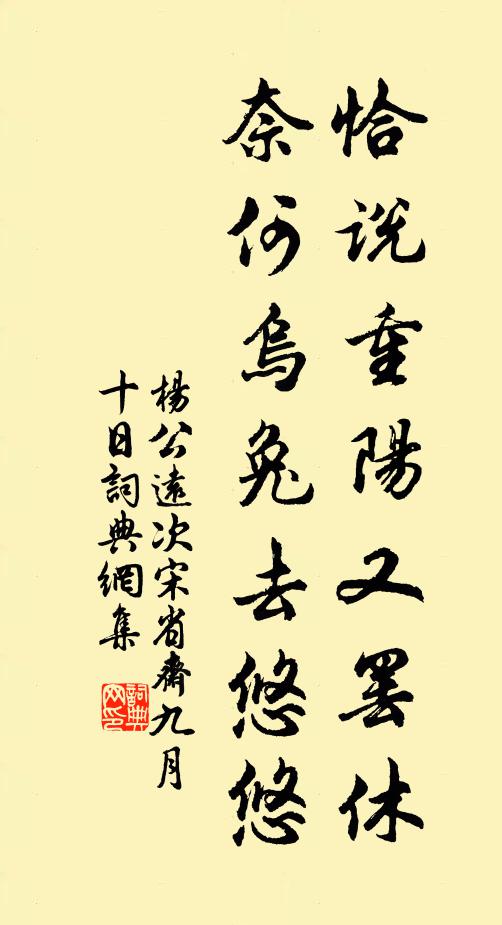 恰説重陽又罷休
奈何烏兔去悠悠
楊公遠次宋省齋九月
十日詞典網集
詞典网印